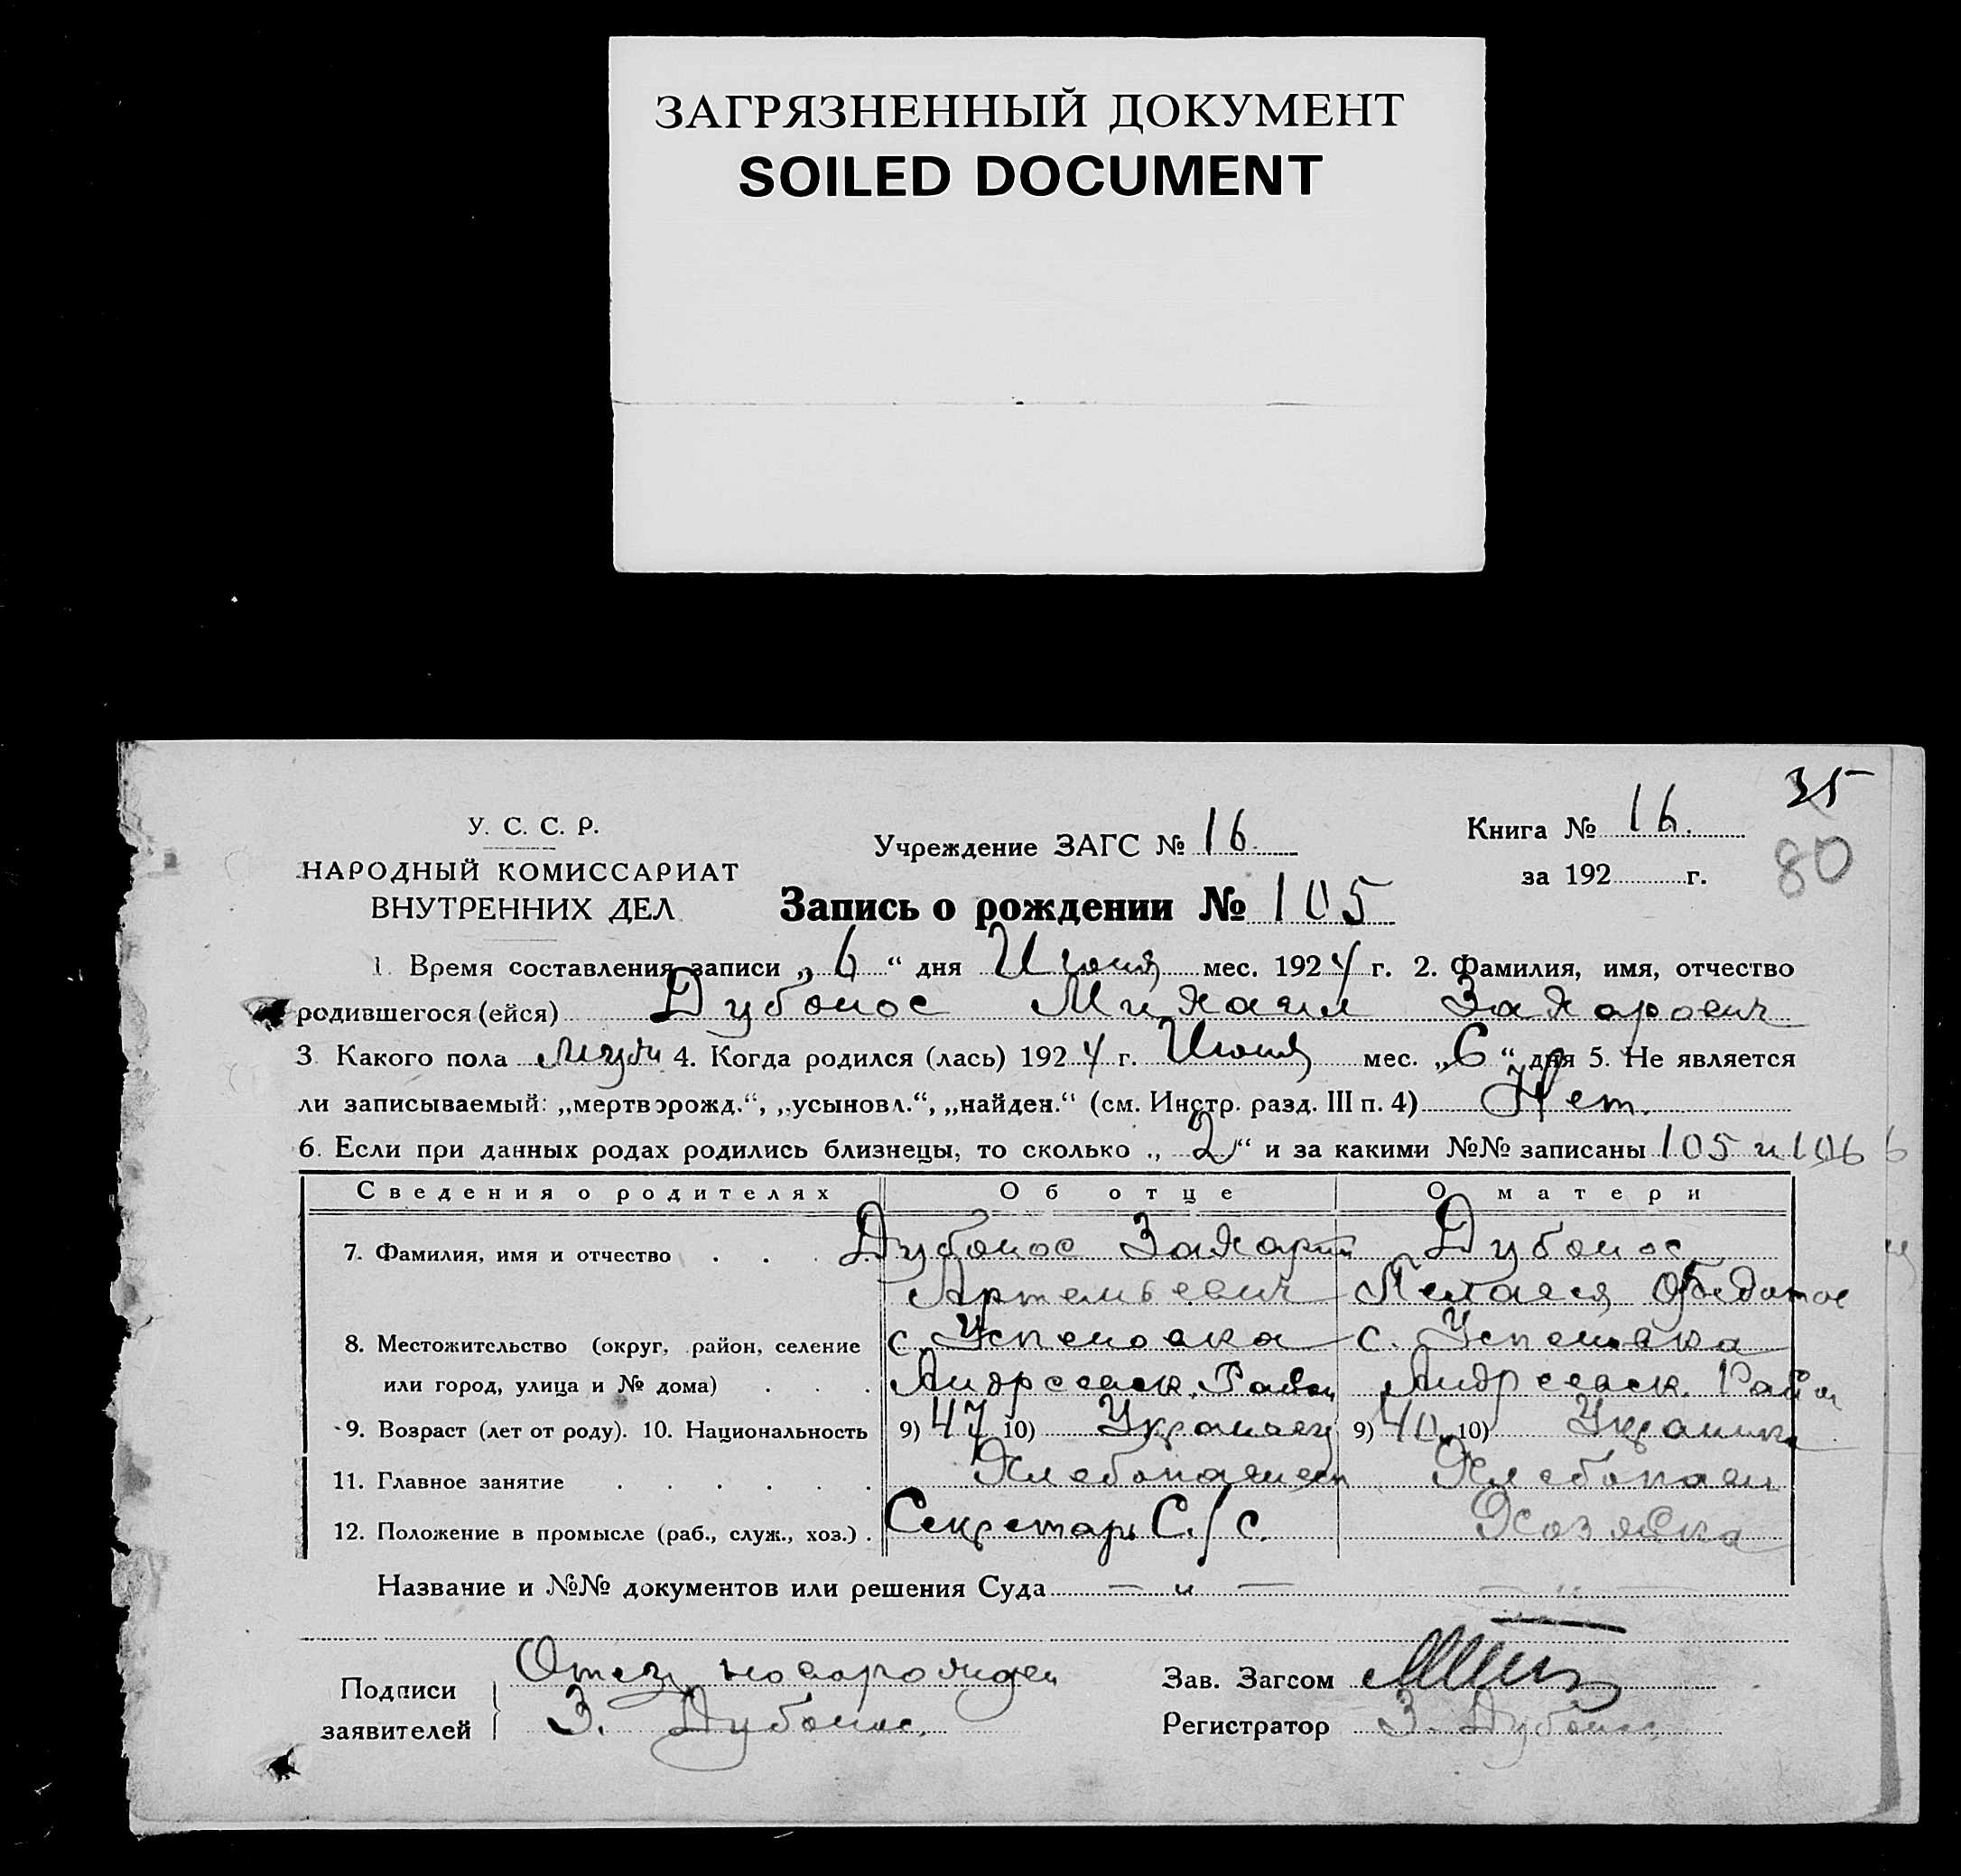 ЗАГРЯЗНЕННЫЙ ДОКУМЕНТ
SOILED DOCUMENT
35
80
У. С. С. Р.
НАРОДНЫЙ КОМИССАРИАТ
ВНУТРЕННИХ ДЕЛ
Учреждение ЗАГС № 16
Книга № 16.
за 192 г.
Запись о рождении № 105
1. Время составления записи „ 6 “ дня Июня мес. 1924 г. 2. Фамилия, имя, отчество
родившегося (ейся) Дубонос Михаил Захарович
3. Какого пола мужч 4. Когда родился (лась) 1924 г. Июня мес. „ 6 “ дня 5. Не является
ли записываемый: „мертворожд.“, „усыновл.“, „найден.“ (см. Инстр. разд. III п. 4) Нет.
6. Если при данных родах родились близнецы, то сколько „ 2 “ и за какими №№ записаны 105 и 106
Сведения о родителях Об отце О матери
7. Фамилия, имя и отчество . . . Дубонос Захарий Дубонос
Артемьевич Пелагея
8. Местожительство (округ, район, селение с. Успеновка с. Успеновка
или город, улица и № дома) . . . Андреевск. Район Андреевск. Район
9. Возраст (лет от роду). 10. Национальность 9) 47 10) Украинец 9) 40 10) Украинка
11. Главное занятие . . . . . . Хлебопашест Хлебопаш
12. Положение в промысле (раб., служ., хоз.) . Секретарь С/С. Хозяйка
Название и №№ документов или решения Суда — „ — — „ —
Подписи заявителей Отец новорожден
З. Дубонос.
Зав. Загсом
Регистратор З. Дубонос